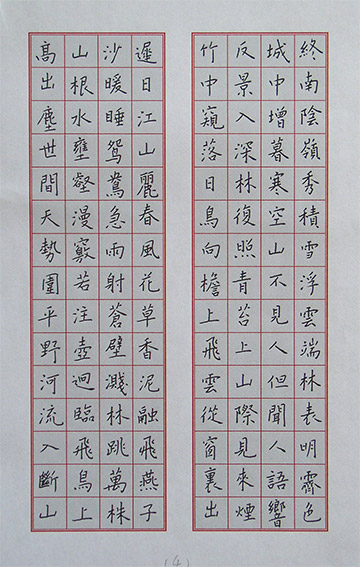 終南陰嶺秀積雪浮雲端林表明霽色
城中增暮寒空山不見人但聞人語響
反景入深林復照青苔上山際見來煙
竹中窺落日鳥向檐上飛雲從窗裏出
遲日江山麗春風花草香泥融飛燕子
沙暖睡鴛鴦急雨射蒼壁濺林跳萬株
山根水壅壑漫竅若注壺迥臨飛鳥上
髙出塵世間天勢圍平野河流入斷山
(4)